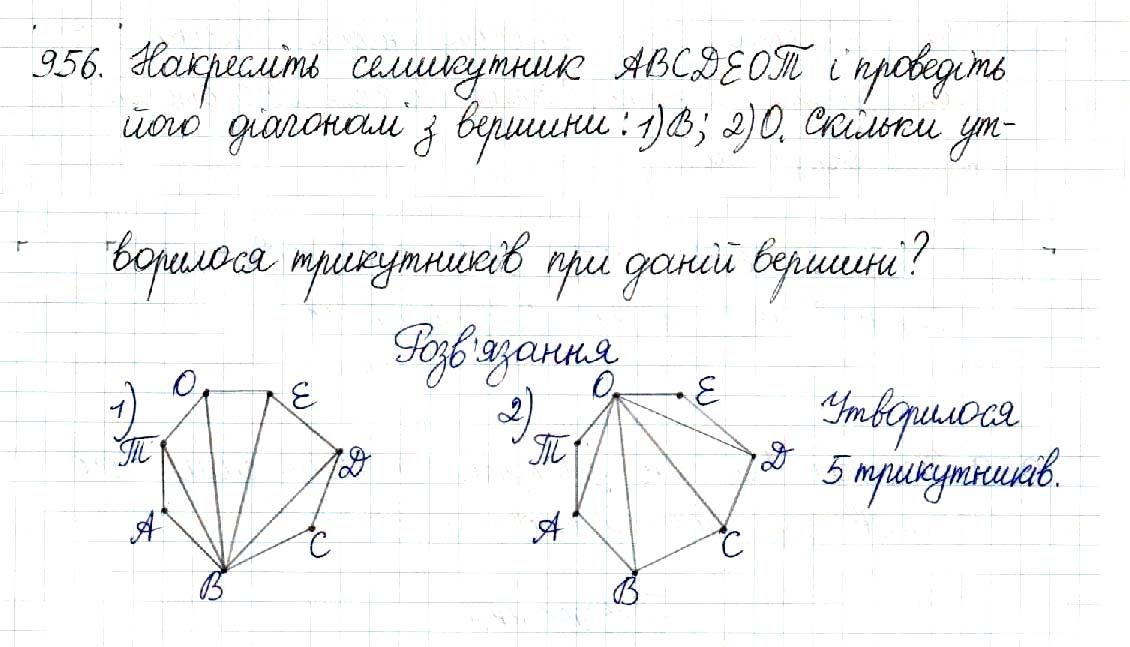 956. Накресліть семикутник ABCDEOT і проведіть
його діагоналі з вершини: 1) B; 2) O. Скільки ут-
ворилося трикутників при даній вершині?
Розв'язання
1) O E
T Д
A C
B
2) O E
T Д
A C
B
Утворилося
5 трикутників.